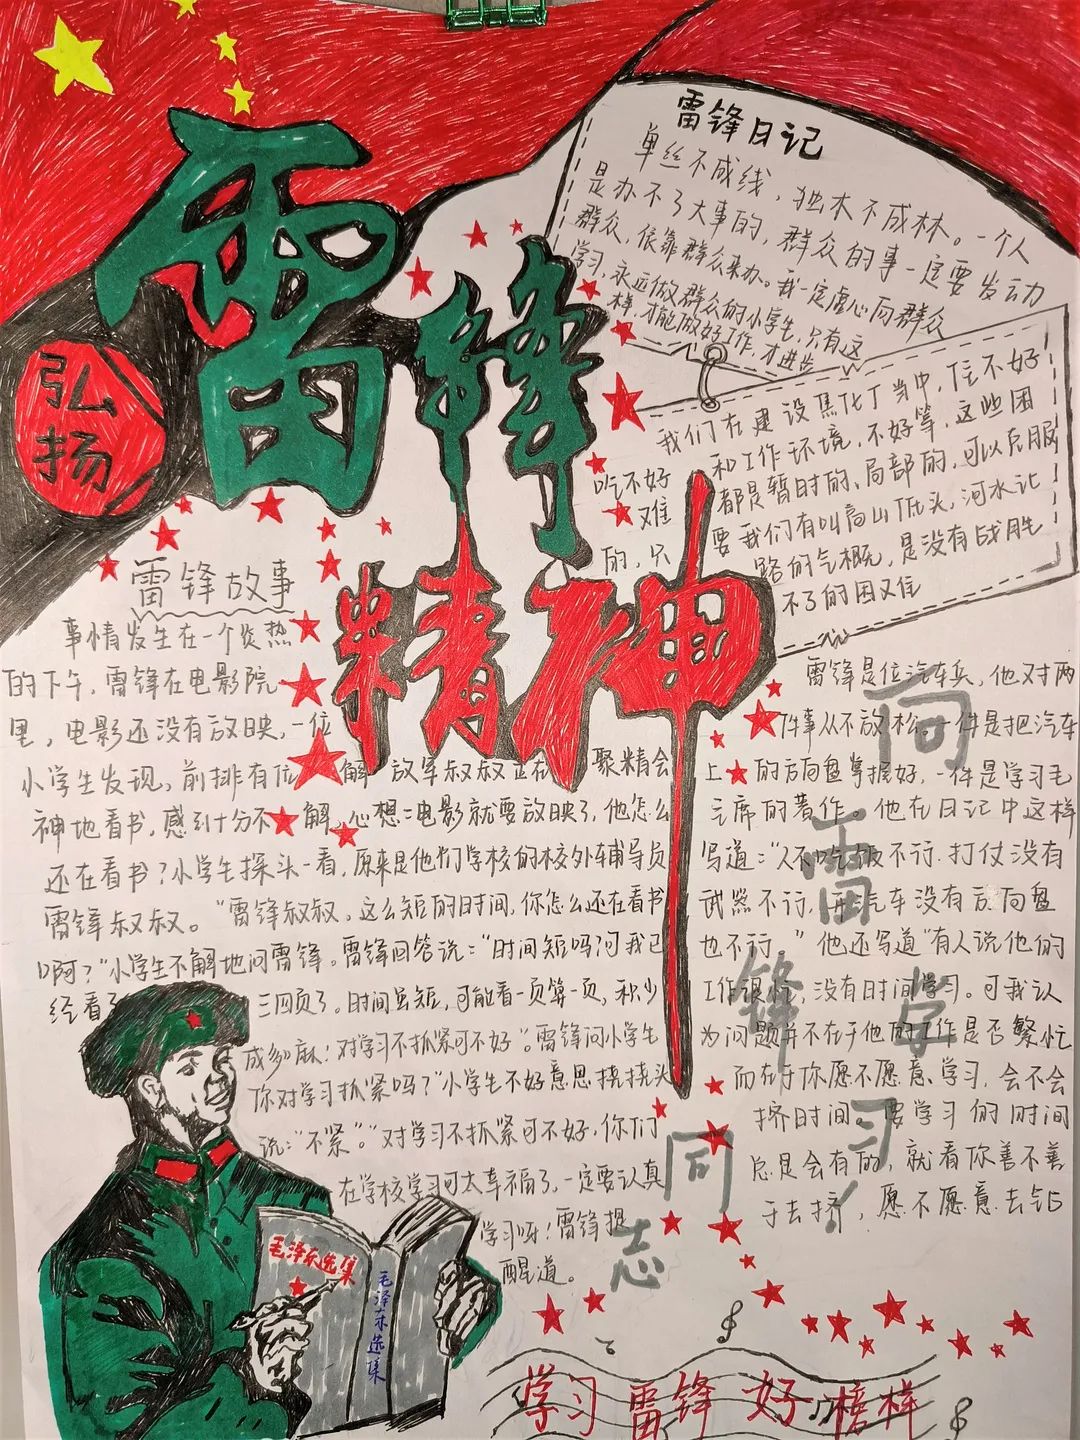 弘扬
雷锋
精神
雷锋日记
单丝不成线，独木不成林。一个人
是办不了大事的，群众的事一定要发动
群众，依靠群众来办。我一定虚心向群众
学习，永远做群众的小学生，只有这
样，才能做好工作，才进步
我们在建设焦化厂当中，住不好
吃不好 和工作环境，不好等，这些困
难 都是暂时的、局部的，可以克服
的，只 要我们有叫高山低头，河水让
路的气概，是没有战胜
不了的困难
雷锋故事
事情发生在一个炎热
的下午，雷锋在电影院
里，电影还没有放映，一位
小学生发现，前排有位 解放军叔叔正在 聚精会
神地看书，感到十分不 解，心想：电影就要放映了，他怎么
还在看书？小学生探头一看，原来是他们学校的校外辅导员
雷锋叔叔。“雷锋叔叔，这么短的时间，你怎么还在看书
啊？”小学生不解地问雷锋。雷锋回答说：“时间短吗？可我已
经看了 三四页了。时间虽短，可能看一页算一页，积少
成多嘛！对学习不抓紧可不好”。雷锋问小学生
你对学习抓紧吗？”小学生不好意思挠挠头
说：“不紧”。“对学习不抓紧可不好，你们
在学校学习可太幸福了，一定要认真
学习呀！雷锋提
醒道。
雷锋是位汽车兵，他对两
件事从不放松，一件是把汽车
上 的方向盘掌握好，一件是学习毛
主席的著作。他在日记中这样
写道：“人不吃饭不行，打仗没有
武器不行，开汽车没有方向盘
也不行。”他还写道“有人说他的
工作很忙，没有时间学习。可我认
为问题并不在于他的工作是否繁忙
而在于你愿不愿意学习，会不会
挤时间，要学习的时间
总是会有的，就看你善不善
于去挤，愿不愿意去钻
向雷锋同志学习！
毛泽东选集
毛泽东选集
学习雷锋好榜样